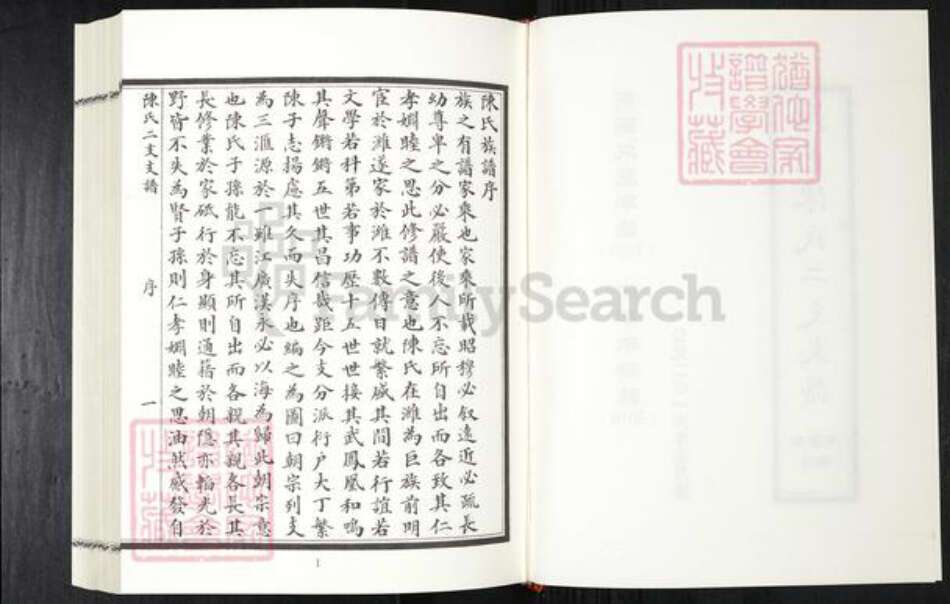 陳氏族譜序
族之有譜家乘也家乘所載昭穆必叙遠近必疏長
幼尊卑之分必嚴使後人不忘所自出而各致其仁
孝婣睦之思此修譜之意也陳氏在濰為巨族前明
宦於濰遂家於濰不數傳日就繁盛其間若行誼若
文學若科第若事功歷十五世世接其武鳳凰和鳴
其聲鏘鏘五世其昌信哉距今支分派衍户大丁繁
陳子志揚慮其久而失序也編之為圖曰朝宗列支
為三滙源於一雖江廣漢永必以海為歸此朝宗意
也陳氏子孫能不忘其所自出而各親其親各長其
長修業於家砥行於身顯則通籍於朝隱亦韜光於
野皆不失為賢子孫則仁孝婣睦之思油然感發自
陳氏二支支譜
序
一
1
FamilySearch
譜學會
收藏